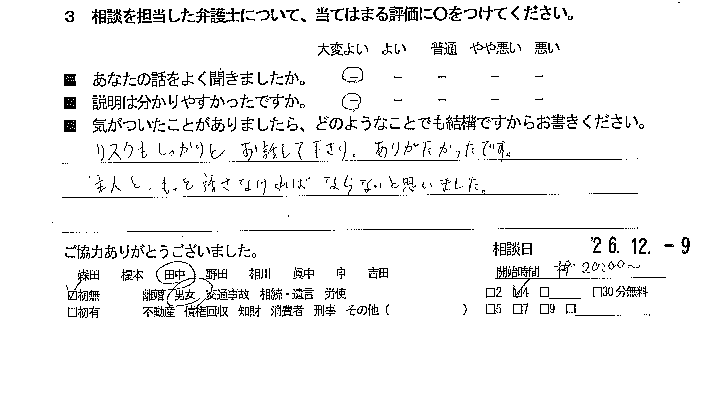 3 相談を担当した弁護士について、当てはまる評価に〇をつけてください。
大変よい よい 普通 やや悪い 悪い
■ あなたの話をよく聞きましたか。 － － － － －
■ 説明は分かりやすかったですか。 － － － － －
■ 気がついたことがありましたら、どのようなことでも結構ですからお書きください。
リスクもしっかりと お話して下さり、ありがたかったです。
主人と、もっと話さなければ ならないと思いました。
ご協力ありがとうございました。
相談日 '26.12.-9
森田 榎本 田中 野田 相川 眞中 申 吉田
開始時間 20:00〜
☑初無 離婚 男女 交通事故 相続・遺言 労使
□2 ☑4 □ □30分無料
□初有 不動産 債権回収 知財 消費者 刑事 その他 ( )
□5 □7 □9 □